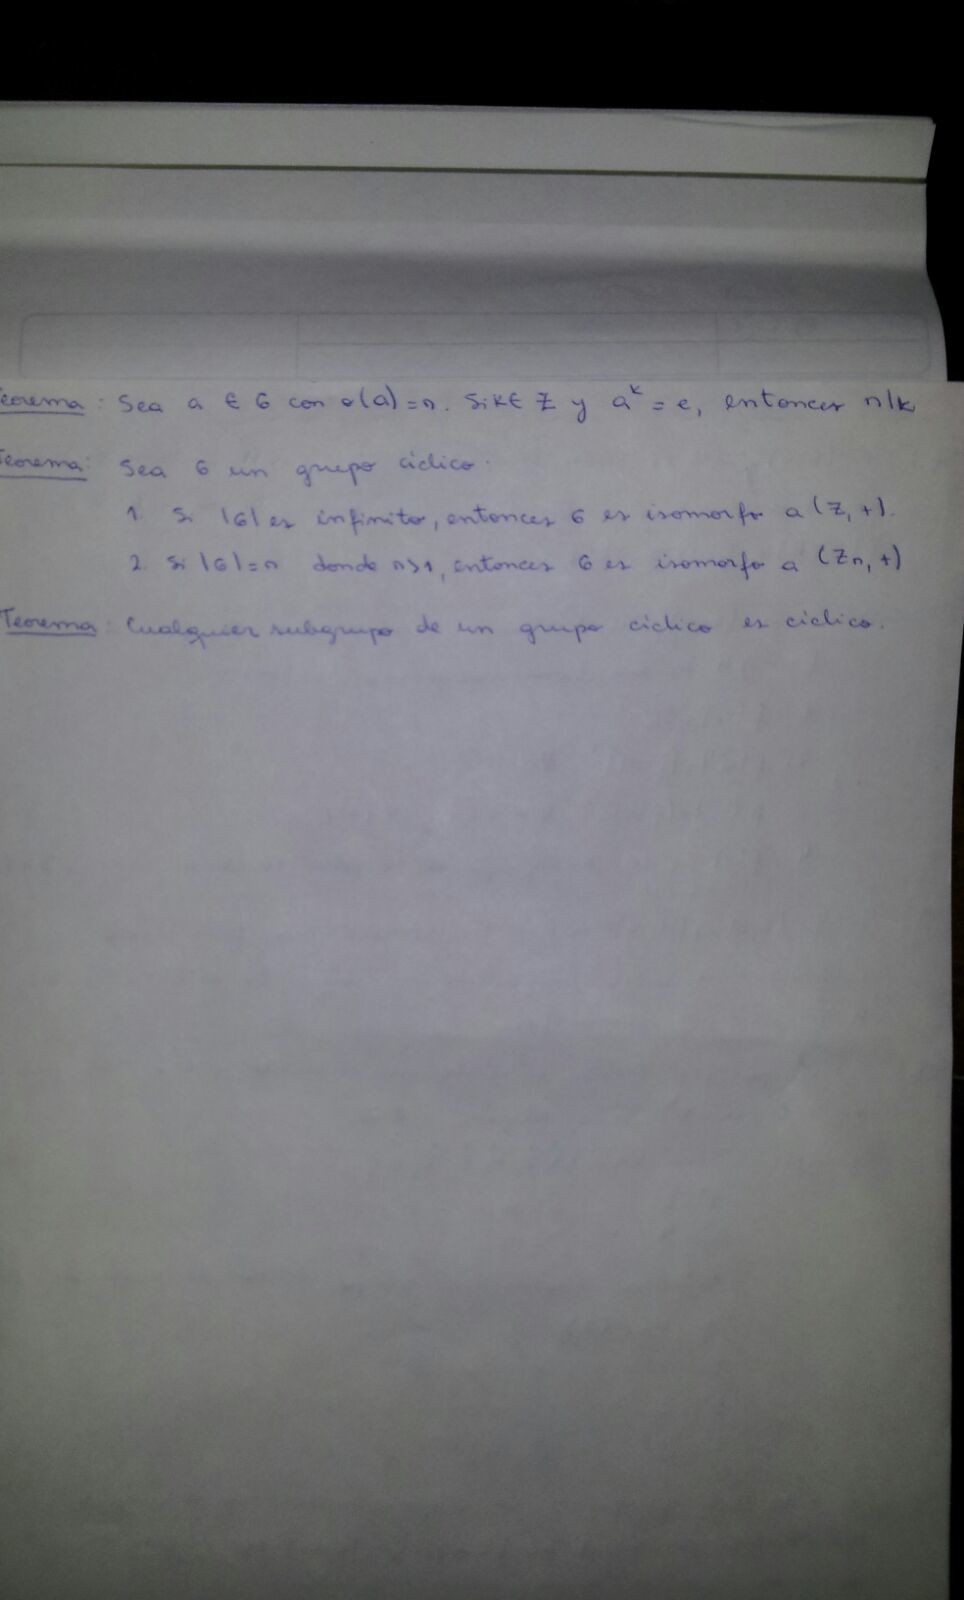 Teorema: Sea a ∈ G con o(a)=n. Si k∈ Z y a^k = e, entonces n|k
Teorema: Sea G un grupo cíclico.
1. Si |G| es infinito, entonces G es isomorfo a (Z,+).
2. Si |G|=n donde n>1, entonces G es isomorfo a (Zn,+)
Teorema: Cualquier subgrupo de un grupo cíclico es cíclico.